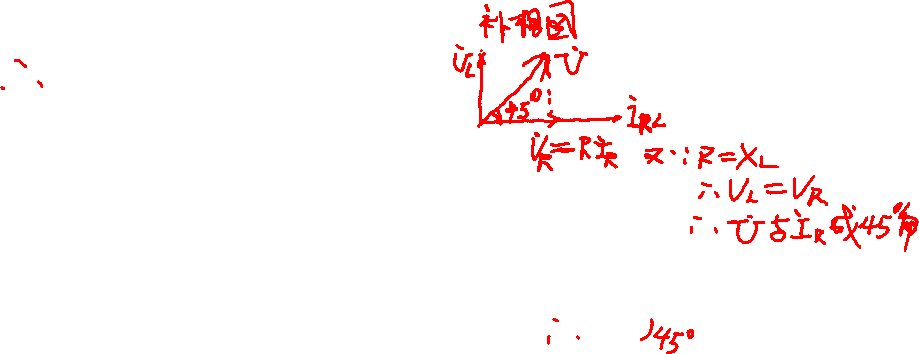 ∴
补相图
U̇L U̇
45°
İRL
U̇R=RİR 又∵R=XL
∴UL=UR
∴U̇与İR成45°角
∴ 45°